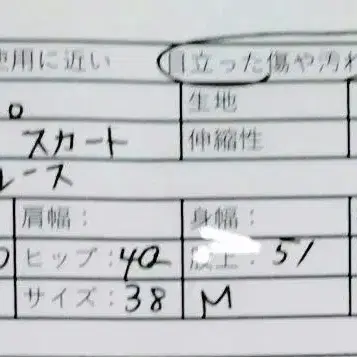 使用に近い 目立った傷や汚れ
生地
スカート 伸縮性
レース
肩幅: 身幅:
ヒップ:40 股上:51
サイズ:38 M